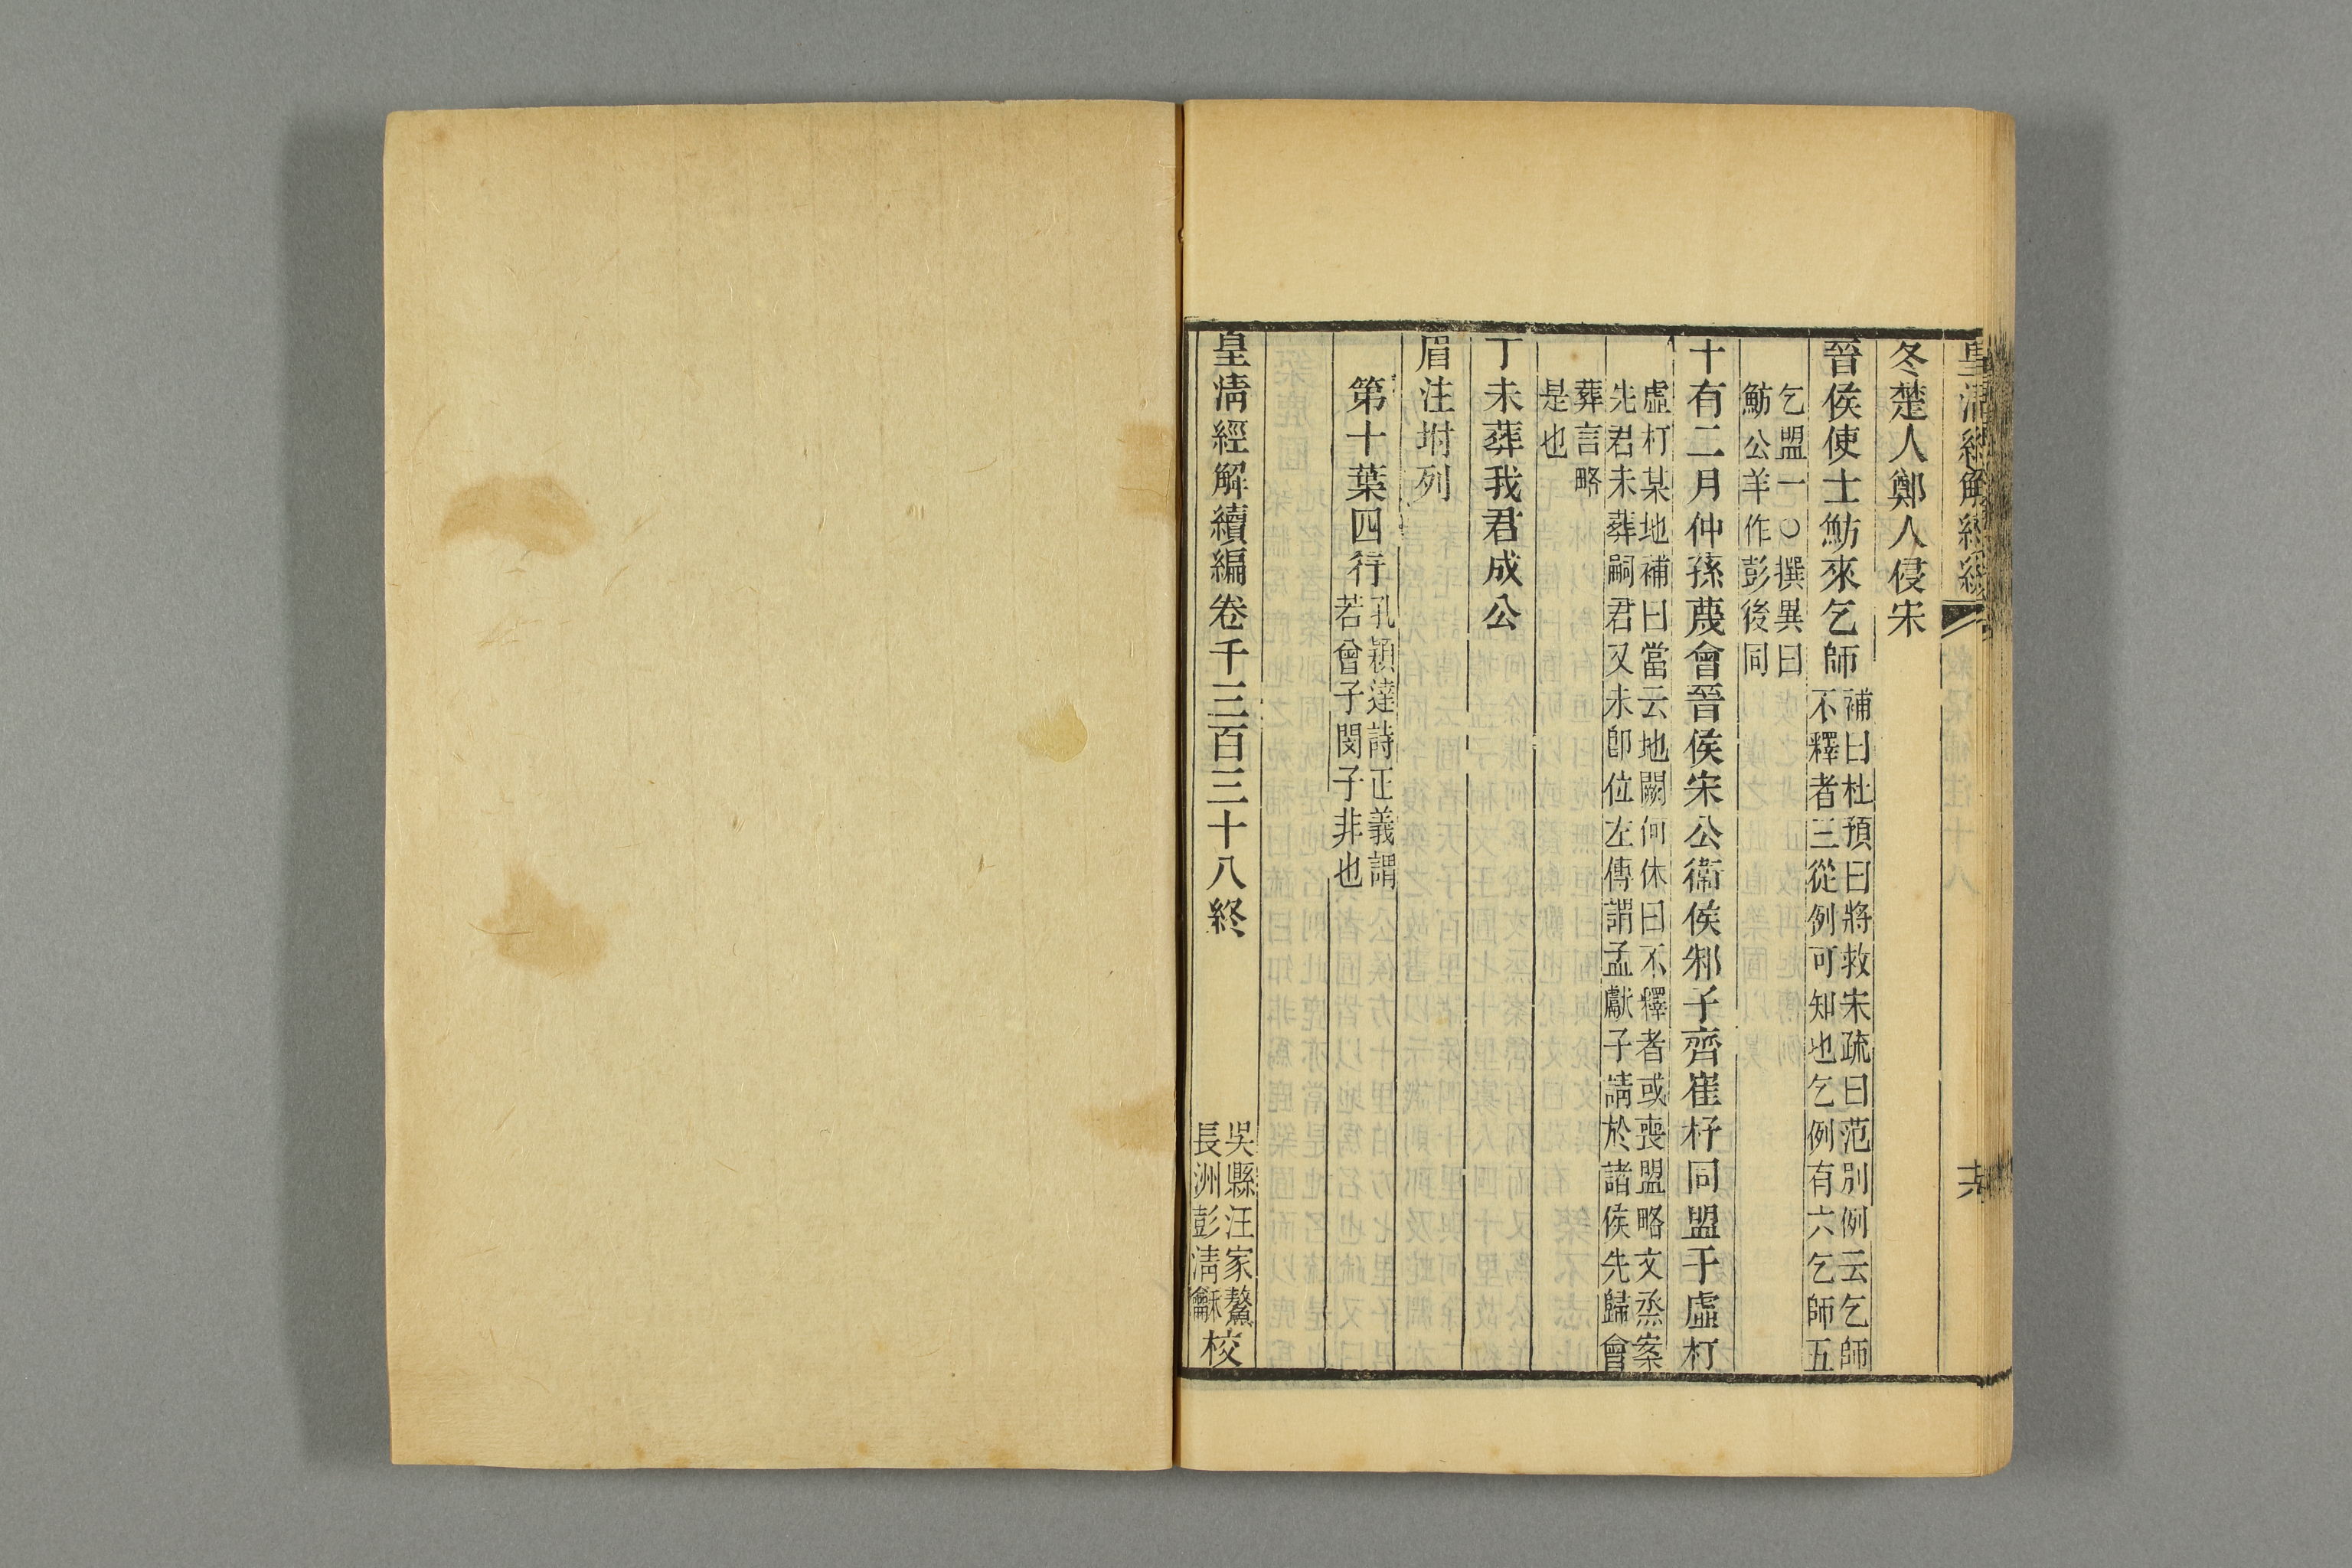 皇清經解續
冬楚人鄭人侵宋
晉侯使士魴來乞師補曰杜預曰將救宋疏曰范別例云乞師
不釋者三從例可知也乞例有六乞師五
乞盟一○撰異曰
魴公羊作彭後同
十有二月仲孫蔑會晉侯宋公衛侯邾子齊崔杼同盟于虛朾
虛朾某地補曰當云地闕何休曰不釋者或喪盟略文烝案
先君未葬嗣君又未卽位左傳謂孟獻子請於諸侯先歸會
葬言略
是也
丁未葬我君成公
眉注坿列
第十葉四行孔穎達詩正義謂
若曾子閔子非也
皇淸經解續編卷千三百三十八終
吳縣汪家鰲
長洲彭淸龢
校